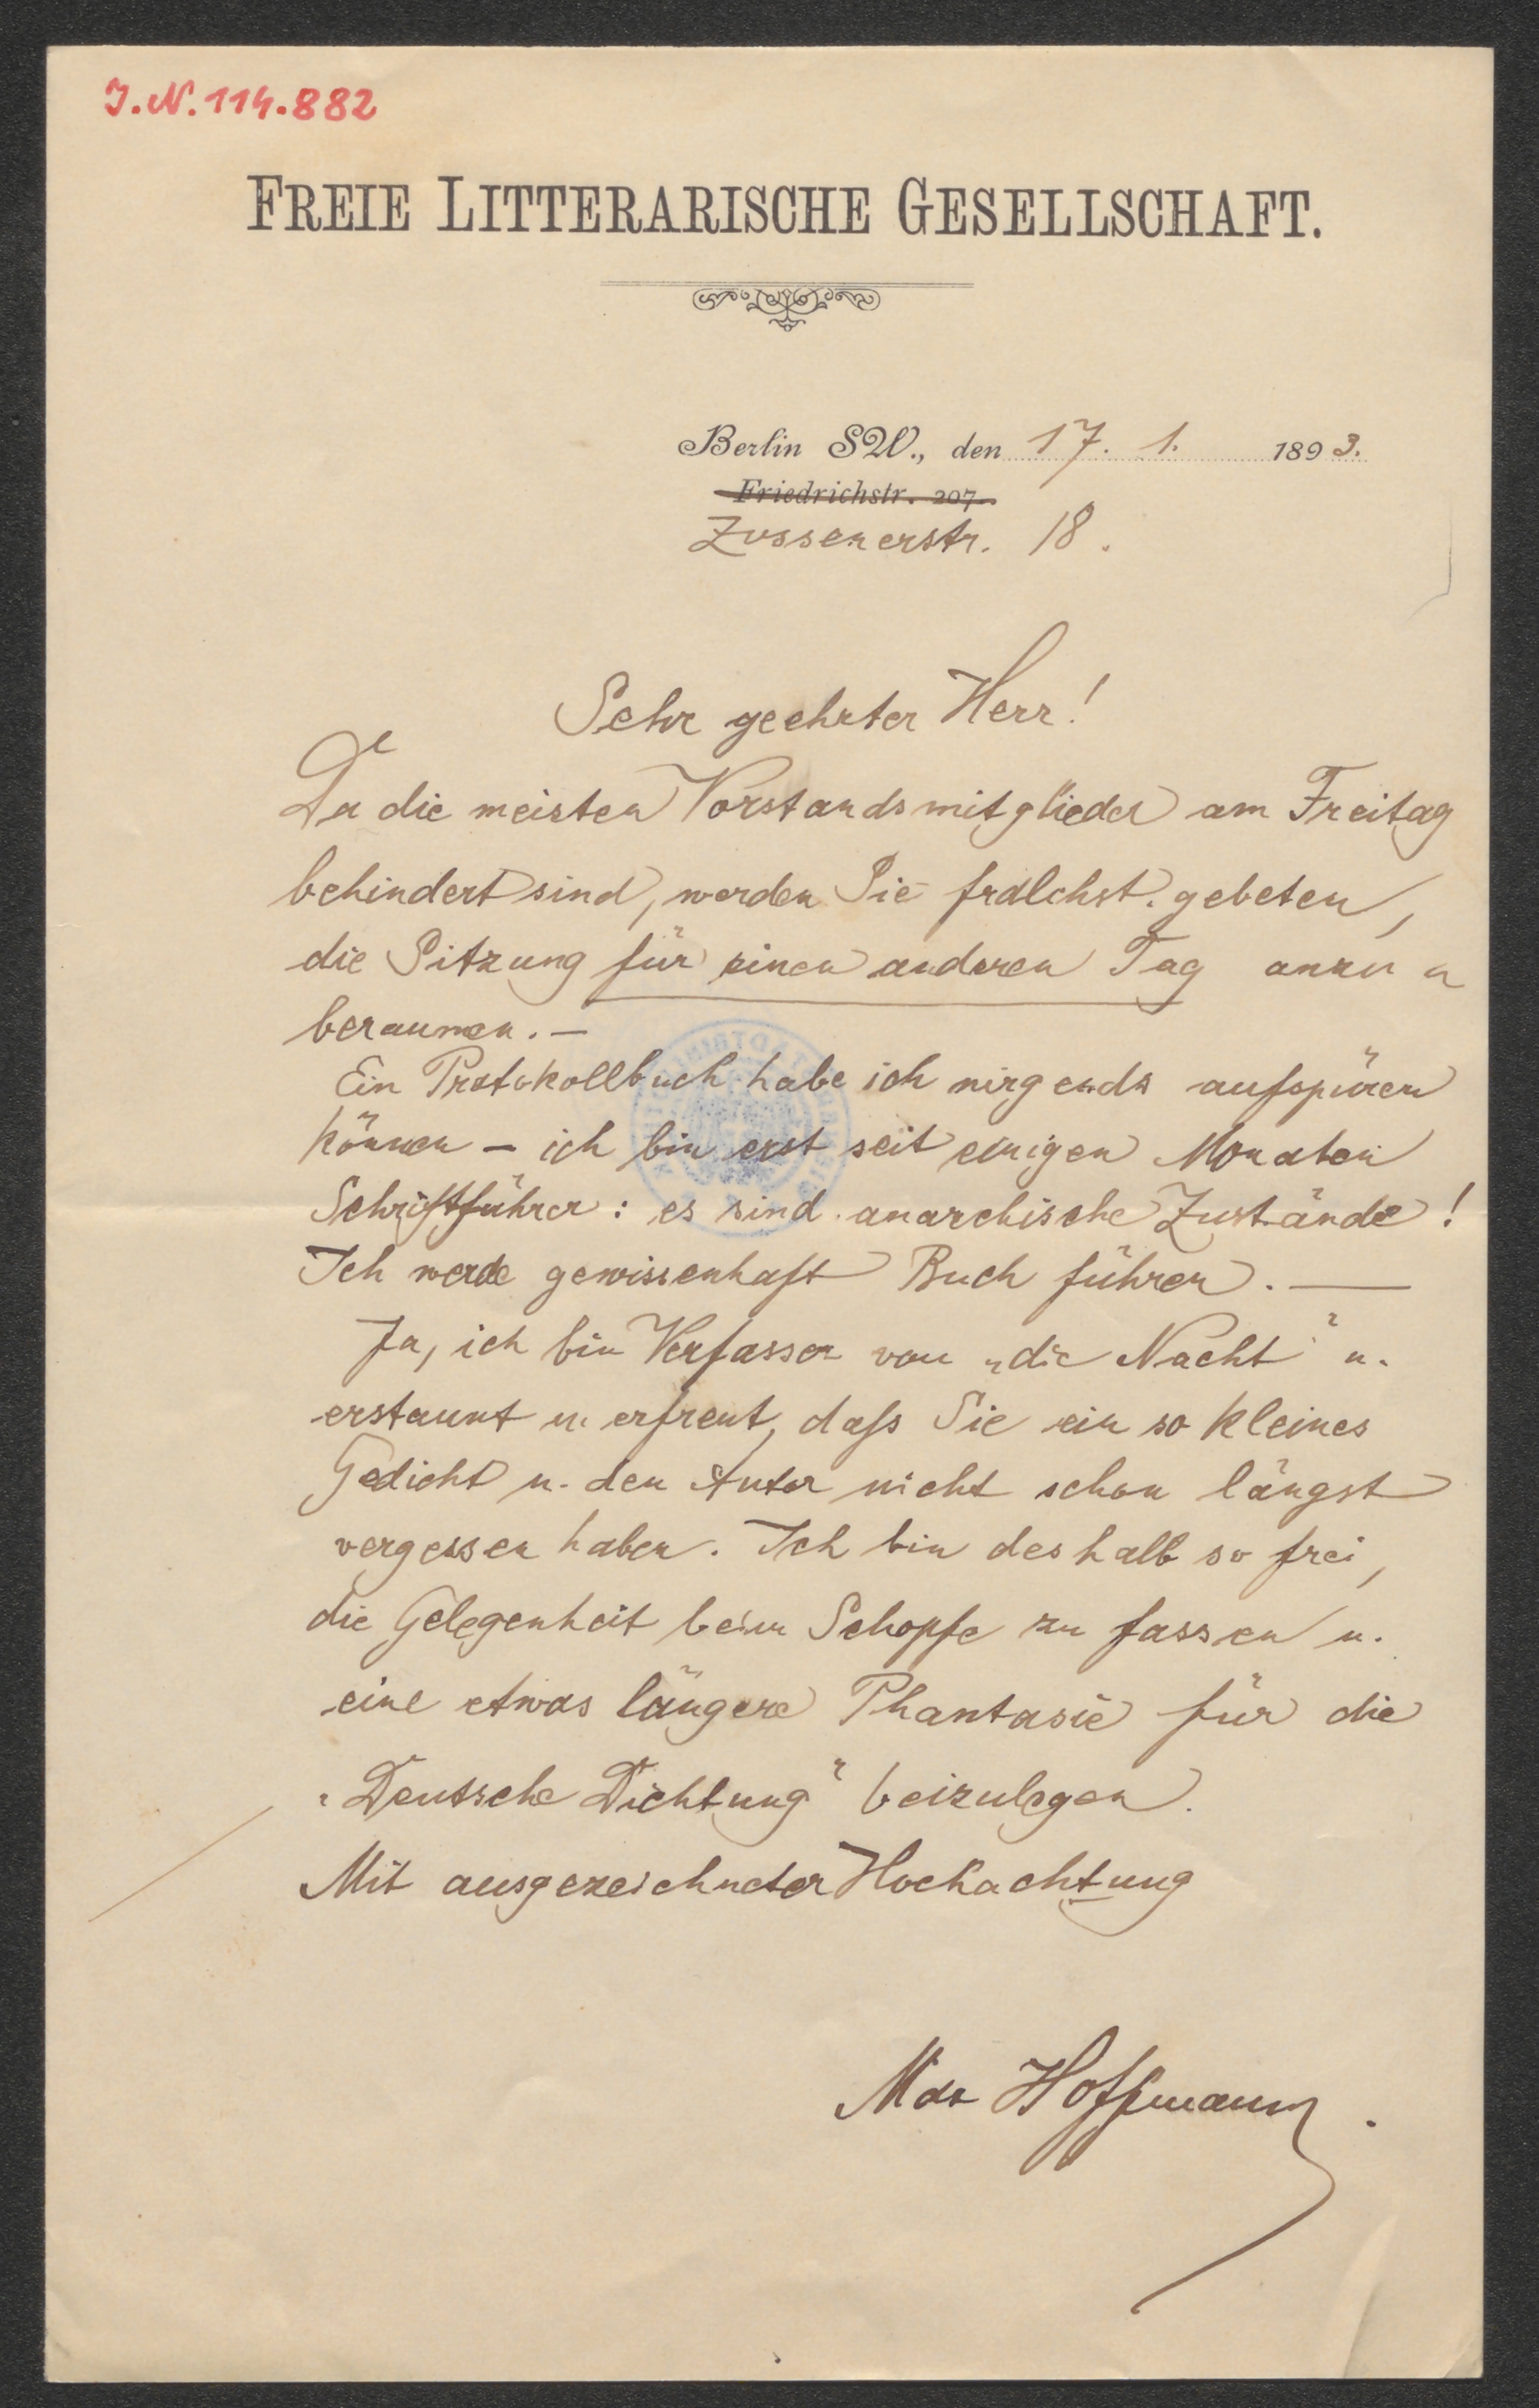 J.N. 114.882
FREIE LITTERARISCHE GESELLSCHAFT.
Berlin SW., den 17. 1. 1893.
Friedrichstr. 207.
Zossenerstr. 18.
Sehr geehrter Herr!
Da die meisten Vorstandsmitglieder am Freitag
behindert sind, werden Sie frdlchst. gebeten,
die Sitzung für einen anderen Tag anzu
beraumen. —
Ein Protokollbuch habe ich nirgends aufspüren
können – ich bin erst seit einigen Monaten
Schriftführer: es sind anarchische Zustände!
Ich werde gewissenhaft Buch führen. —
Ja, ich bin Verfasser von „die Nacht" u.
erstaunt u. erfreut, daß Sie ein so kleines
Gedicht u. den Autor nicht schon längst
vergessen haben. Ich bin deshalb so frei,
die Gelegenheit beim Schopfe zu fassen u.
eine etwas längere Phantasie für die
„Deutsche Dichtung" beizulegen.
Mit ausgezeichneter Hochachtung
Max Hoffmann.